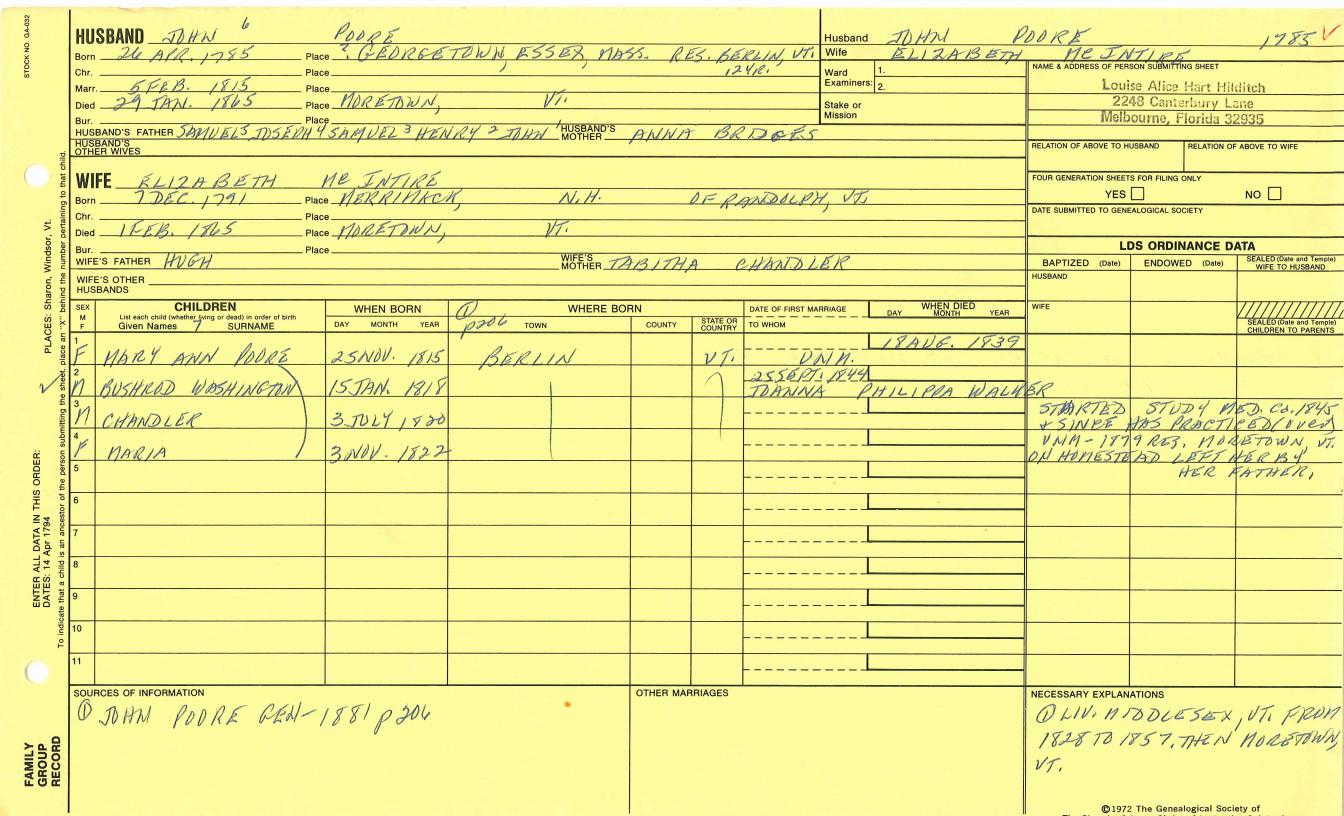 STOCK NO. GA-032
HUSBAND JOHN 6 POORE
Born 26 APR. 1785 Place ? GEORGETOWN, ESSEX, MASS. RES. BERLIN, VT.
Chr. Place 12 YR.
Marr. 5 FEB. 1815 Place
Died 29 JAN. 1865 Place MORETOWN, VT.
Bur. Place
HUSBAND'S FATHER SAMUEL 5 JOSEPH 4 SAMUEL 3 HENRY 2 JOHN 1 HUSBAND'S MOTHER ANNA BRIDGES
HUSBAND'S OTHER WIVES
Husband JOHN POORE 1785 ✓
Wife ELIZABETH Mc INTIRE
Ward Examiners: 1.
2.
Stake or Mission
NAME & ADDRESS OF PERSON SUBMITTING SHEET
Louise Alice Hart Hilditch
2248 Canterbury Lane
Melbourne, Florida 32935
RELATION OF ABOVE TO HUSBAND RELATION OF ABOVE TO WIFE
FOUR GENERATION SHEETS FOR FILING ONLY
YES NO
DATE SUBMITTED TO GENEALOGICAL SOCIETY
WIFE ELIZABETH Mc INTIRE
Born 7 DEC. 1791 Place MERRIMACK, N.H. OF RANDOLPH, VT.
Chr. Place
Died 1 FEB. 1865 Place MORETOWN, VT.
Bur. Place
WIFE'S FATHER HUGH WIFE'S MOTHER TABITHA CHANDLER
WIFE'S OTHER HUSBANDS
LDS ORDINANCE DATA
BAPTIZED (Date) ENDOWED (Date) SEALED (Date and Temple) WIFE TO HUSBAND
HUSBAND
WIFE
SEALED (Date and Temple) CHILDREN TO PARENTS
SEX M F
CHILDREN
List each child (whether living or dead) in order of birth
Given Names 7 SURNAME
WHEN BORN
DAY MONTH YEAR
① p206
WHERE BORN
TOWN COUNTY STATE OR COUNTRY
DATE OF FIRST MARRIAGE
TO WHOM
WHEN DIED
DAY MONTH YEAR
1 F MARY ANN POORE 25 NOV. 1815 BERLIN VT. UNM. 18 AUG. 1839
2 M BUSHROD WASHINGTON 15 JAN. 1818 25 SEPT. 1844 JOANNA PHILIPPA WALKER
3 M CHANDLER 3 JULY 1820
4 F MARIA 3 NOV. 1822
5
6
7
8
9
10
11
STARTED STUDY MED. Co. 1845
& SINCE HAS PRACTICED (over)
UNM - 1879 RES. MORETOWN, VT.
ON HOMESTEAD LEFT HER BY
HER FATHER.
SOURCES OF INFORMATION
① JOHN POORE GEN- 1881 p206
OTHER MARRIAGES
NECESSARY EXPLANATIONS
① LIV. MIDDLESEX, VT. FROM
1828 TO 1857. THEN MORETOWN,
VT.
©1972 The Genealogical Society of
ENTER ALL DATA IN THIS ORDER:
DATES: 14 Apr 1794
PLACES: Sharon, Windsor, Vt.
To indicate that a child is an ancestor of the person submitting the sheet, place an "X" behind the number pertaining to that child.
FAMILY GROUP RECORD